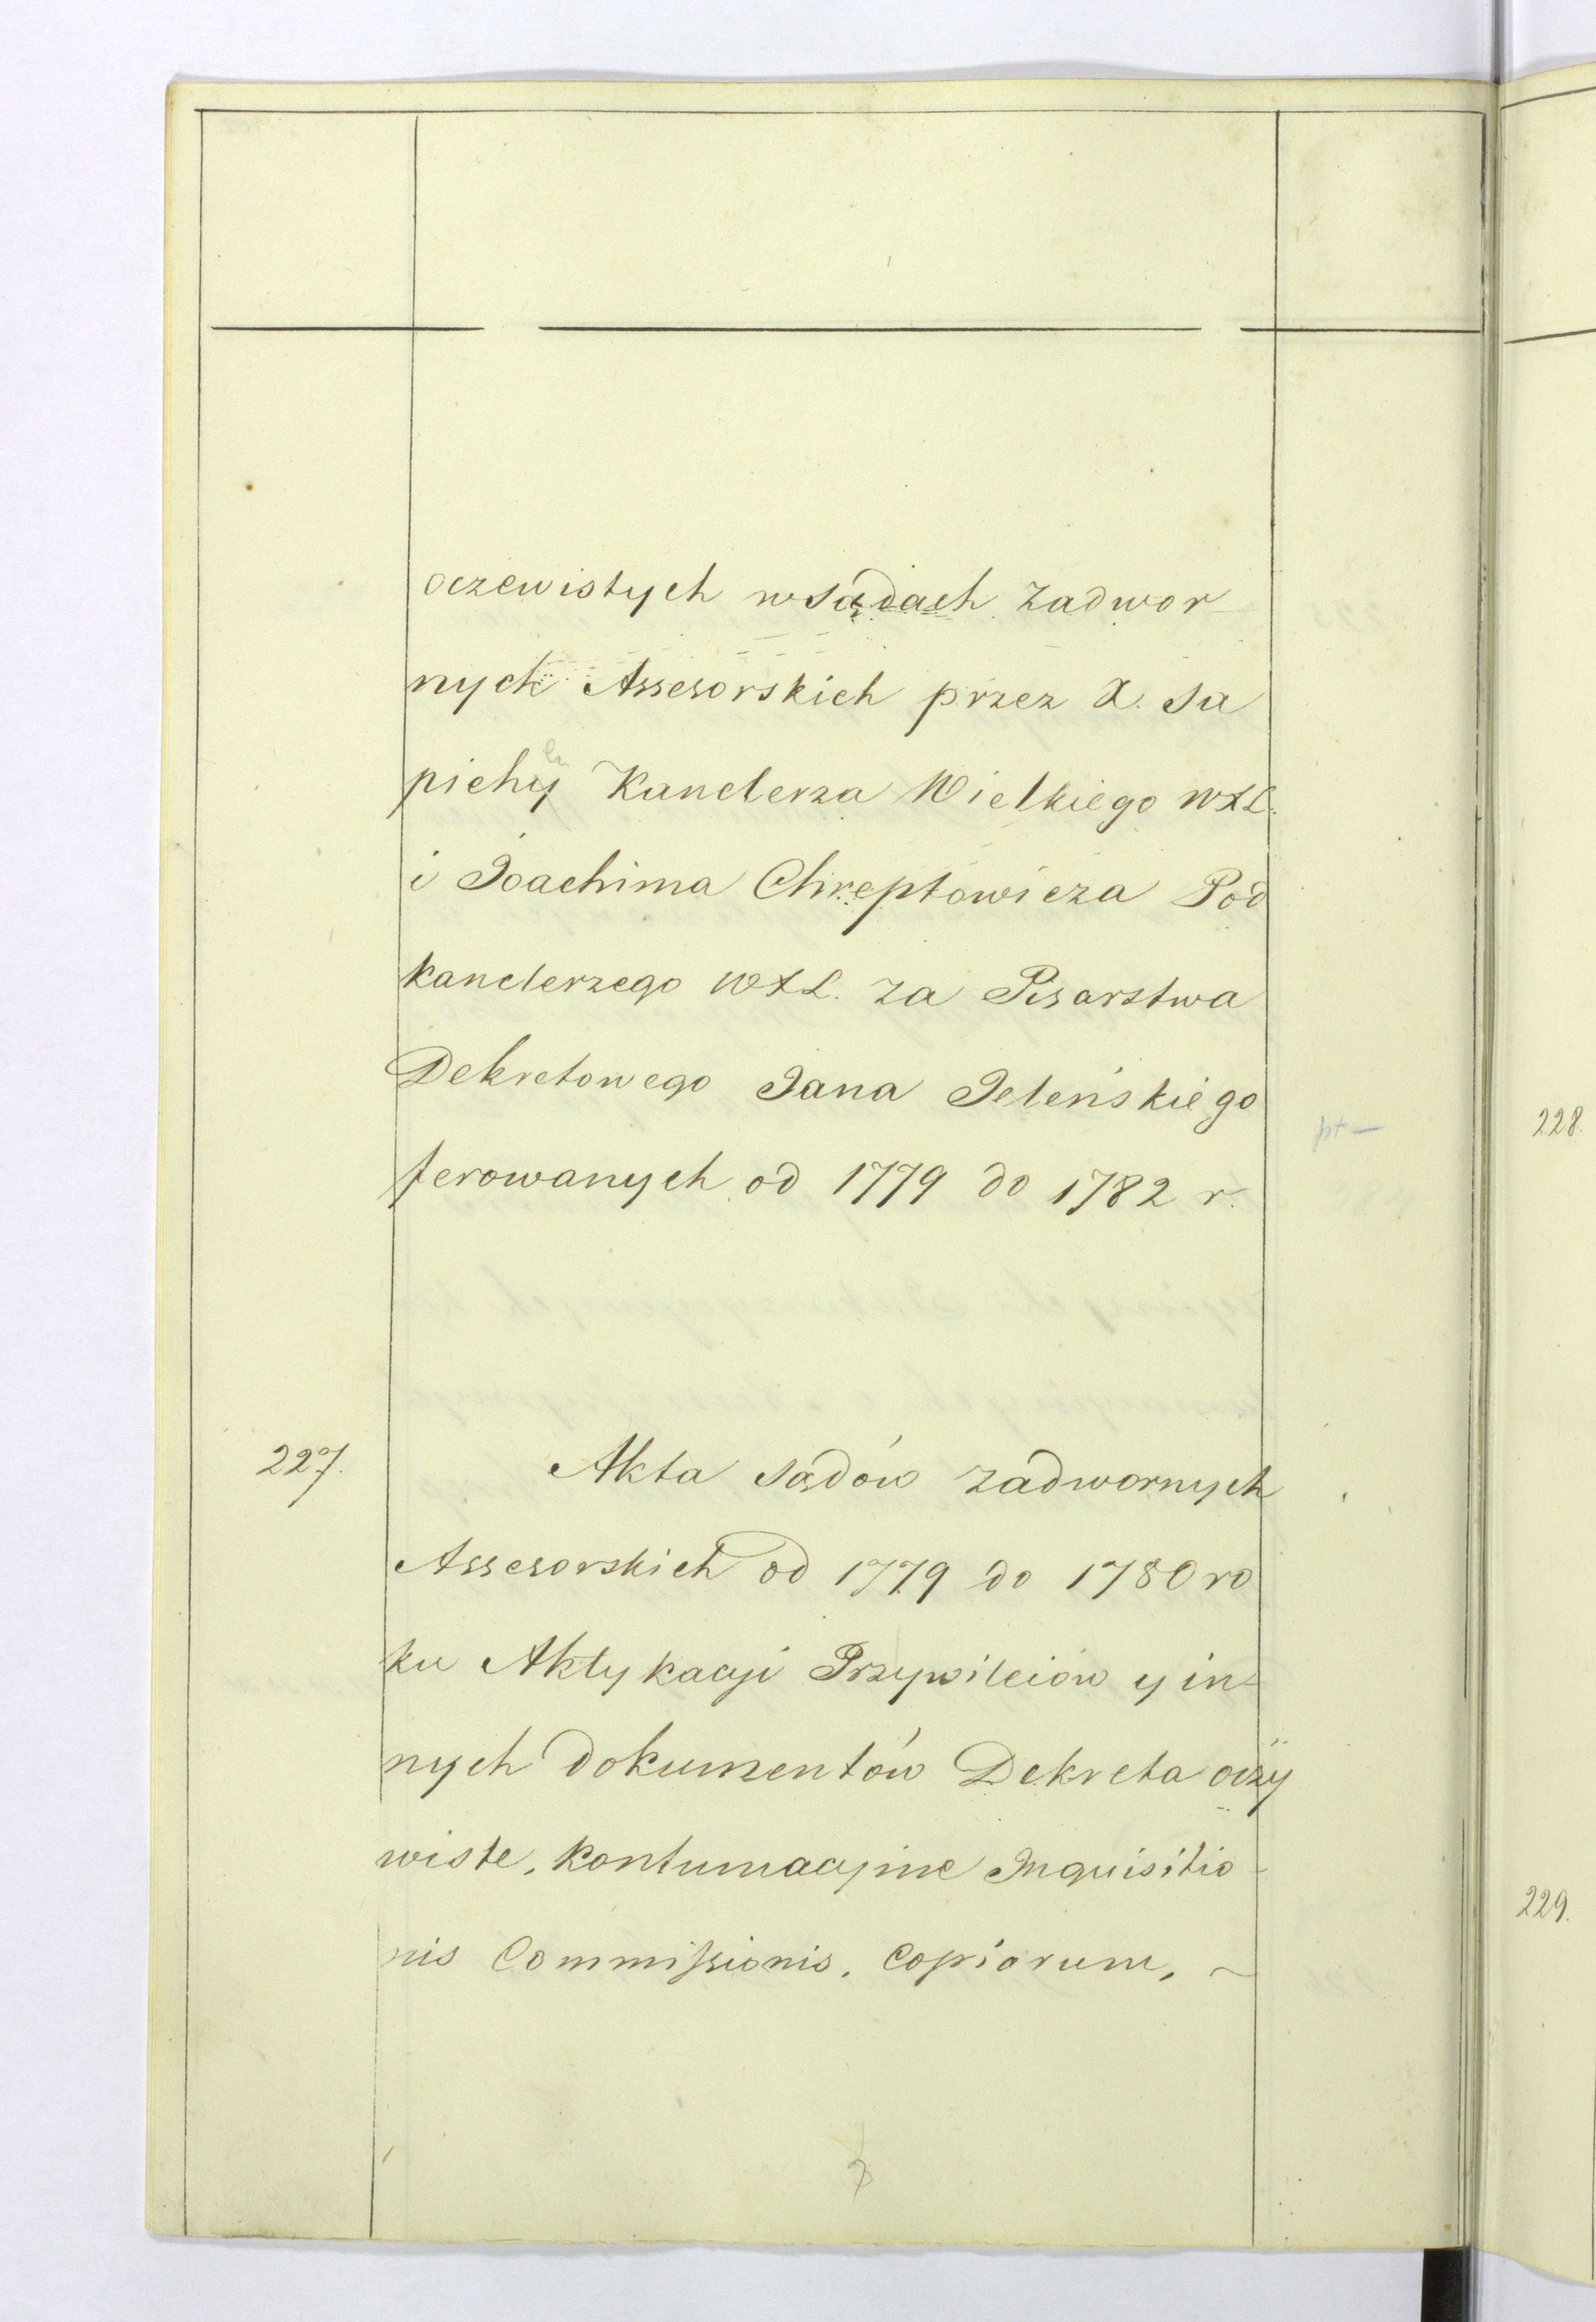 oczewistych w sądach Zadwor
nych Assesorskich przez X. Sa
piehy Kanclerza Wielkiego WXL.
i Joachima Chreptowicza Pod
kanclerzego WXL. za Pisarstwa
Dekretowego Jana Jeleńskiego
ferowanych od 1779 do 1782 r.
pt —
228.
227.
Akta sądów zadwornych
Assesorskich od 1779 do 1780 ro
ku Aktykacyi Przywileiów y in-
nych dokumentów Dekreta oczy
wiste, kontumacyine Inquisitio-
nis Commissionis, Copiarum, ~
229.